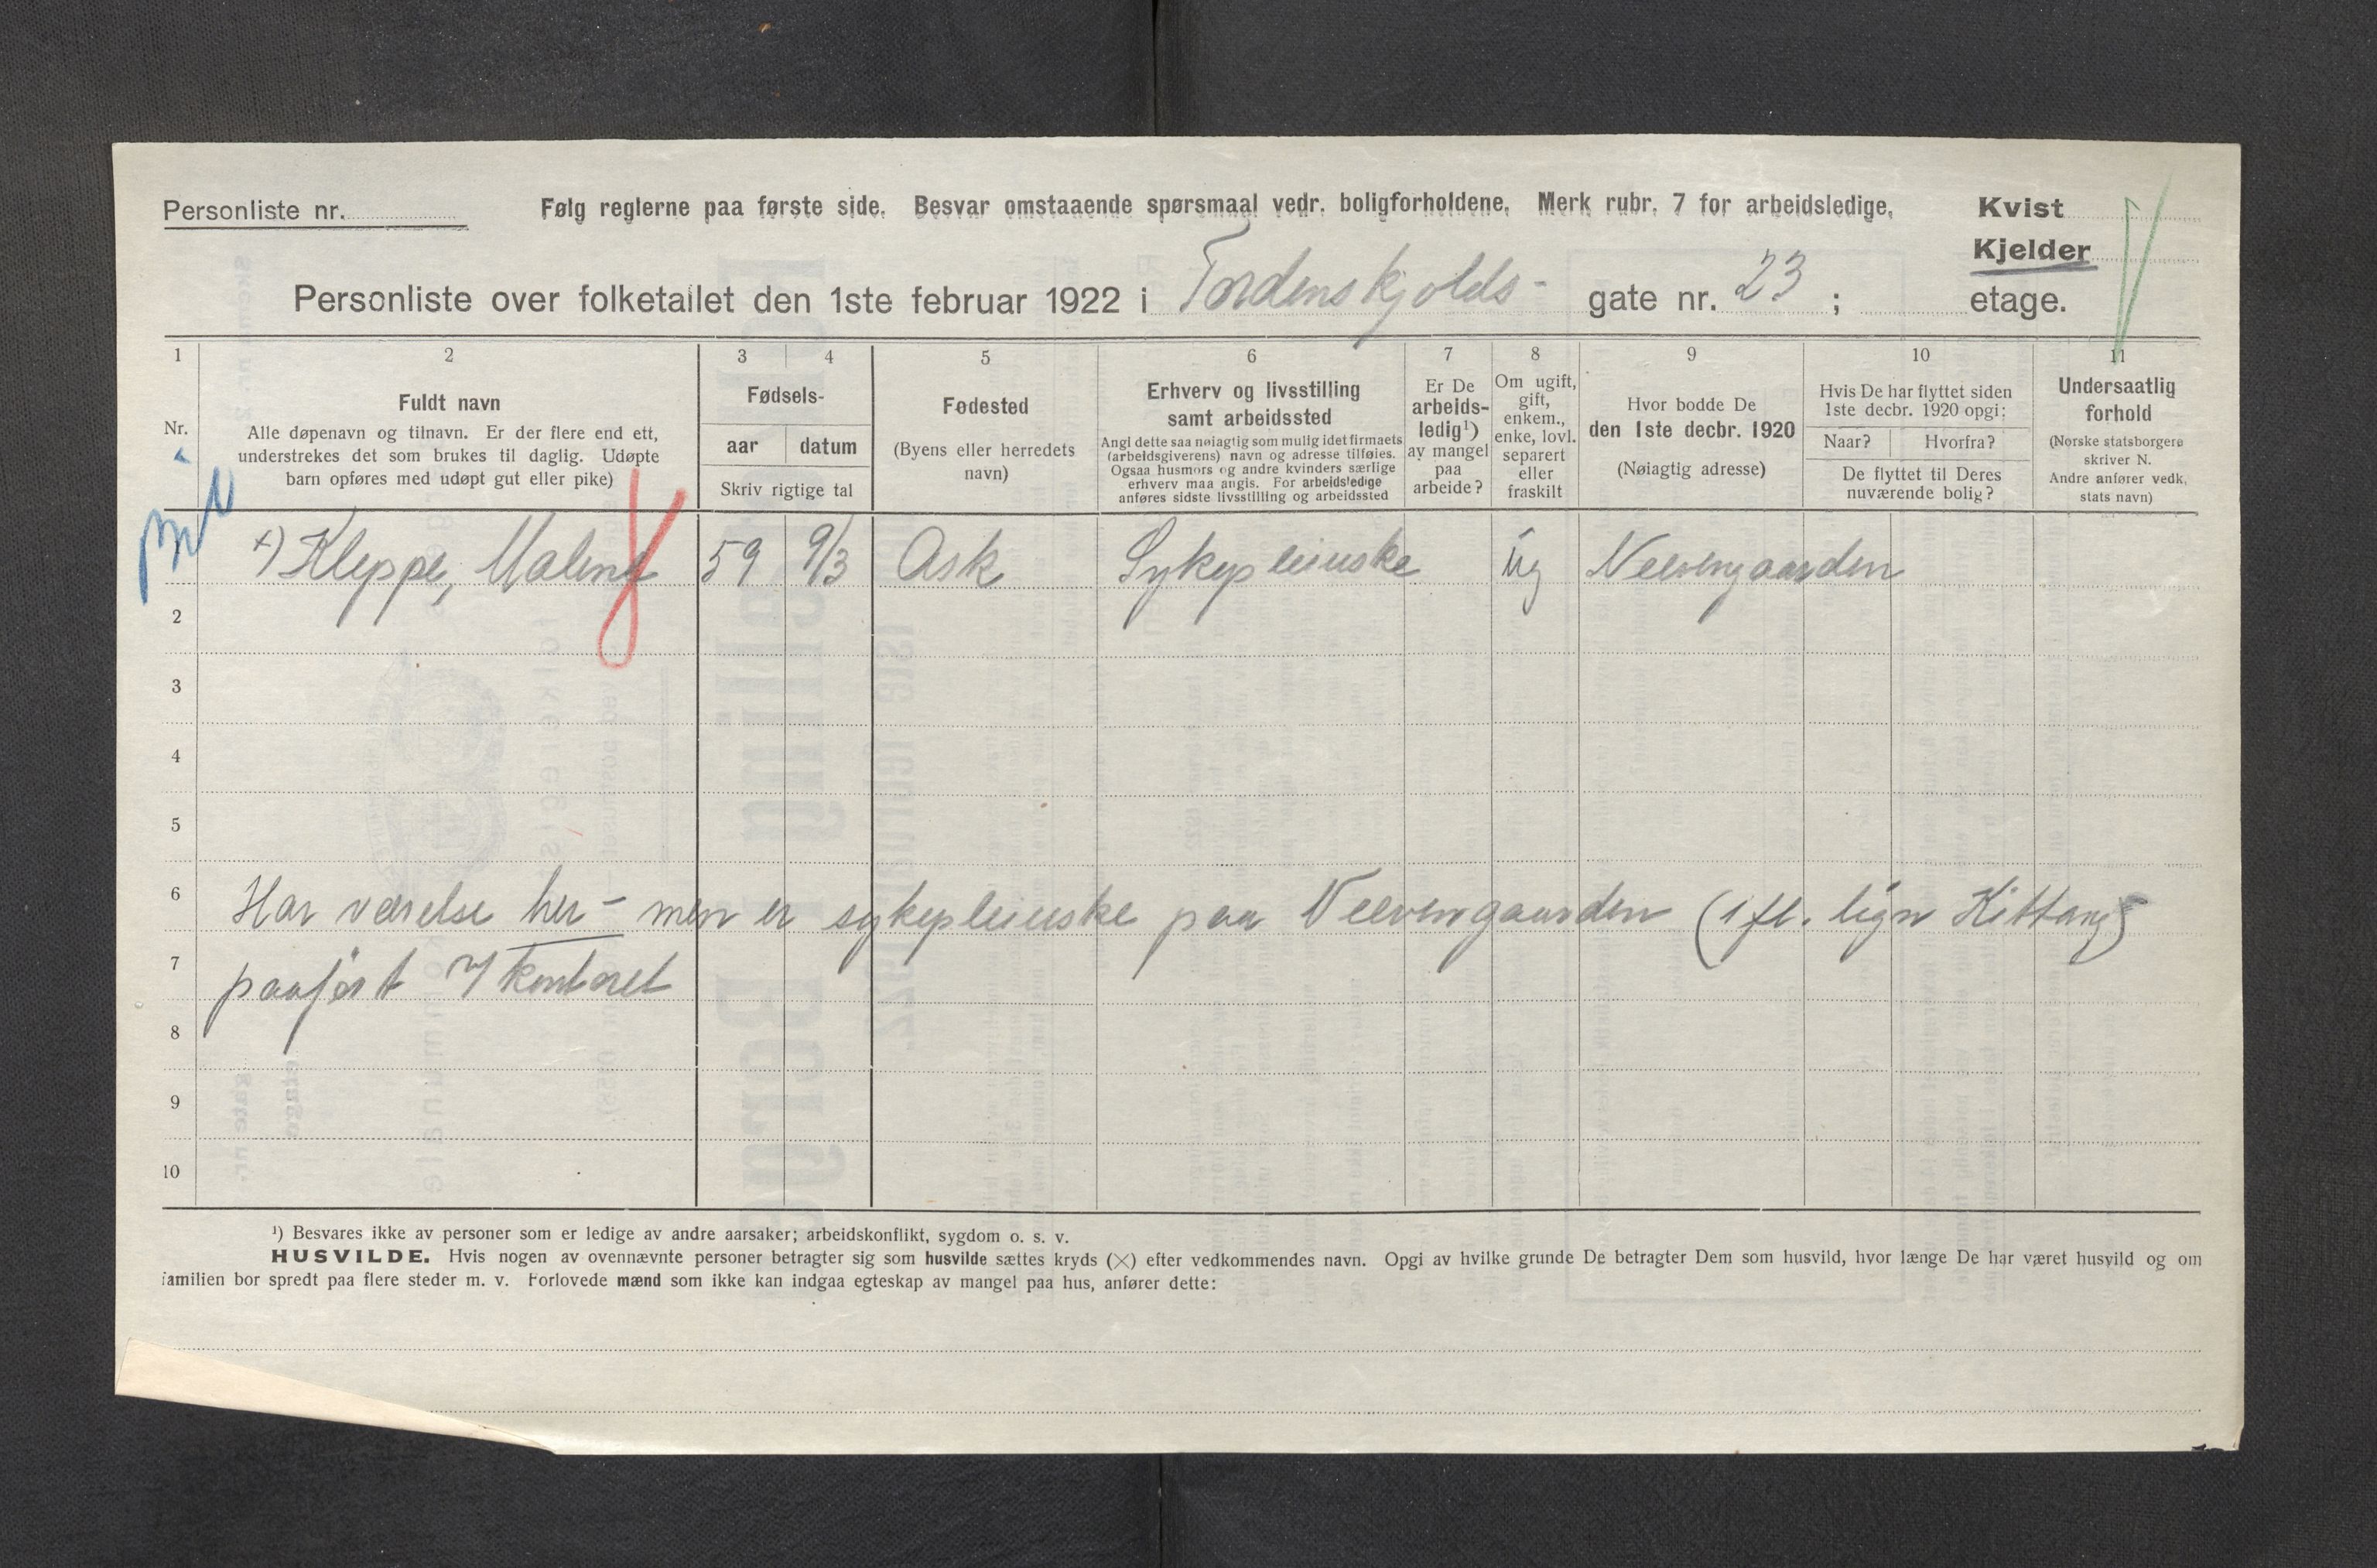 Personliste nr.
Følg reglerne paa første side. Besvar omstaaende spørsmaal vedr. boligforholdene. Merk rubr. 7 for arbeidsledige.
Kvist
Kjelder
Personliste over folketallet den 1ste februar 1922 i Tordenskjolds- gate nr. 23 ; etage.
1 2 3 4 5 6 7 8 9 10 11
Nr.
Fuldt navn
Alle døpenavn og tilnavn. Er der flere end ett,
understrekes det som brukes til daglig. Udøpte
barn opføres med udøpt gut eller pike)
Fødsels-
aar datum
Skriv rigtige tal
Fødested
(Byens eller herredets
navn)
Erhverv og livsstilling
samt arbeidssted
Angi dette saa nøiagtig som mulig idet firmaets
(arbeidsgiverens) navn og adresse tilføies.
Ogsaa husmors og andre kvinders særlige
erhverv maa angis. For arbeidsledige
anføres sidste livsstilling og arbeidssted
Er De
arbeids-
ledig¹)
av mangel
paa
arbeide?
Om ugift,
gift,
enkem.,
enke, lovl.
separert
eller
fraskilt
Hvor bodde De
den 1ste decbr. 1920
(Nøiagtig adresse)
Hvis De har flyttet siden
1ste decbr. 1920 opgi:
Naar? Hvorfra?
De flyttet til Deres
nuværende bolig?
Undersaatlig
forhold
(Norske statsborgere
skriver N.
Andre anfører vedk.
stats navn)
×) Kleppe, Malene 59 9/3 Ask Sykepleierske ug Neevengaarden
2
3
4
5
6 Har værelse her - men er sykepleierske paa Neevengaarden (ifl. lign Kittang)
7 paaført v/ kontoret
8
9
10
¹) Besvares ikke av personer som er ledige av andre aarsaker; arbeidskonflikt, sygdom o. s. v.
HUSVILDE. Hvis nogen av ovennævnte personer betragter sig som husvilde sættes kryds (×) efter vedkommendes navn. Opgi av hvilke grunde De betragter Dem som husvild, hvor længe De har været husvild og om
familien bor spredt paa flere steder m. v. Forlovede mænd som ikke kan indgaa egteskap av mangel paa hus, anfører dette: